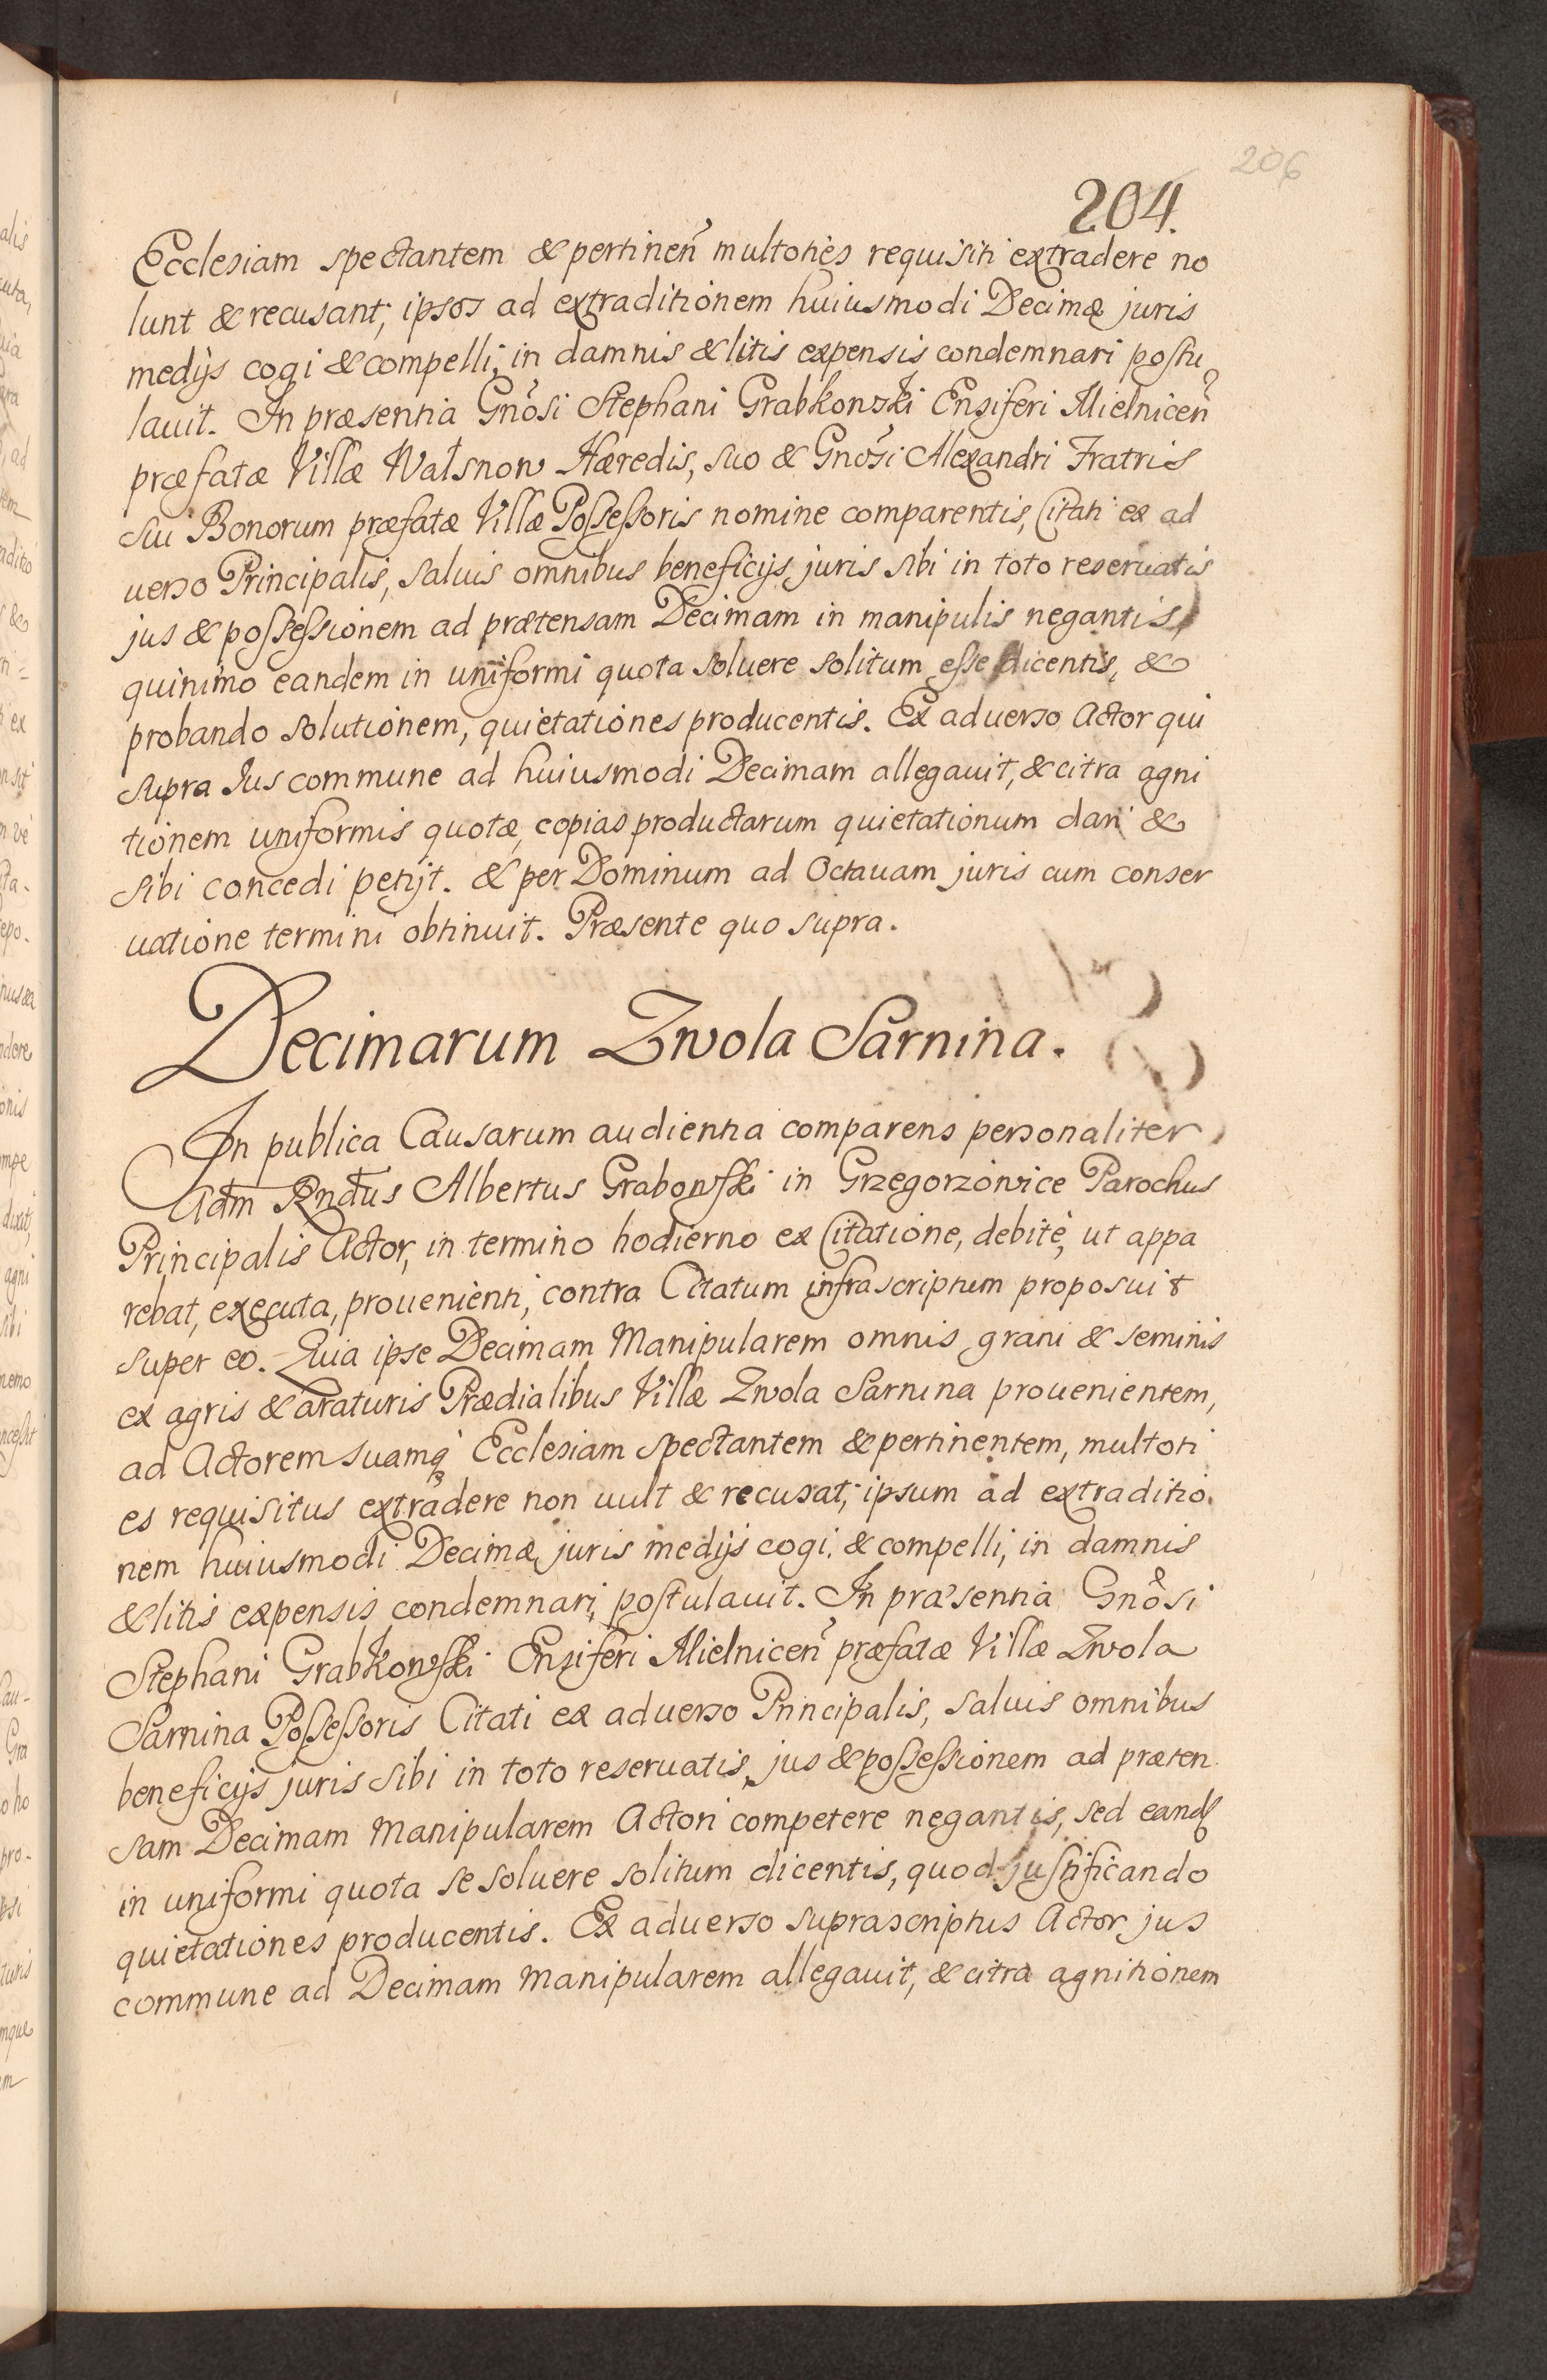 206
204.
Ecclesiam spectantem & pertineñ multoties requisiti extradere no
lunt & recusant, ipsos ad extraditionem huiusmodi Decimæ juris
medijs cogi & compelli, in damnis & litis expensis condemnari postu
lauit. In præsentia Gnõsi Stephani Grabkowski Ensiferi Mielniceñ
præfatæ Villæ Wałsnow Hæredis, suo & Gnõsi Alexandri Fratris
sui Bonorum præfatæ Villæ Possessoris nomine comparentis, Citati ex ad
uerso Principalis, saluis omnibus beneficijs juris sibi in toto reseruatis
jus & possessionem ad prætensam Decimam in manipulis negantis,
quinimo eandem in uniformi quota soluere solitum esse dicentis, &
probando solutionem, quietationes producentis. Ex aduerso Actor qui
supra Jus commune ad huiusmodi Decimam allegauit, & citra agni
tionem uniformis quotæ, copias productarum quietationum dari &
sibi concedi petijt. & per Dominum ad Octauam juris cum conser
uatione termini obtinuit. Præsente quo supra.
Decimarum Zwola Sarnina.
In publica Causarum audientia comparens personaliter
Adm Rndus Albertus Grabowski in Grzegorzowice Parochus
Principalis Actor, in termino hodierno ex Citatione, debitè, ut appa
rebat, executa, prouenienti, contra Citatum infrascriptum proposuit
super eo. Quia ipse Decimam Manipularem omnis grani & seminis
ex agris & araturis Prædialibus Villæ Zwola Sarnina prouenientem,
ad Actorem suamq́ Ecclesiam spectantem & pertinentem, multoti
es requisitus extradere non uult & recusat, ipsum ad extraditio
nem huiusmodi Decimæ juris medijs cogi & compelli, in damnis
& litis expensis condemnari, postulauit. In præsentia Gnõsi
Stephani Grabkowski Ensiferi Mielniceñ præfatæ Villæ Zwola
Sarnina Possessoris Citati ex aduerso Principalis, saluis omnibus
beneficijs juris sibi in toto reseruatis, jus & possessionem ad præten
sam Decimam Manipularem Actori competere negantis, sed eand
in uniformi quota se soluere solitum dicentis, quod justificando
quietationes producentis. Ex aduerso suprascriptus Actor jus
commune ad Decimam Manipularem allegauit, & citra agnitionem